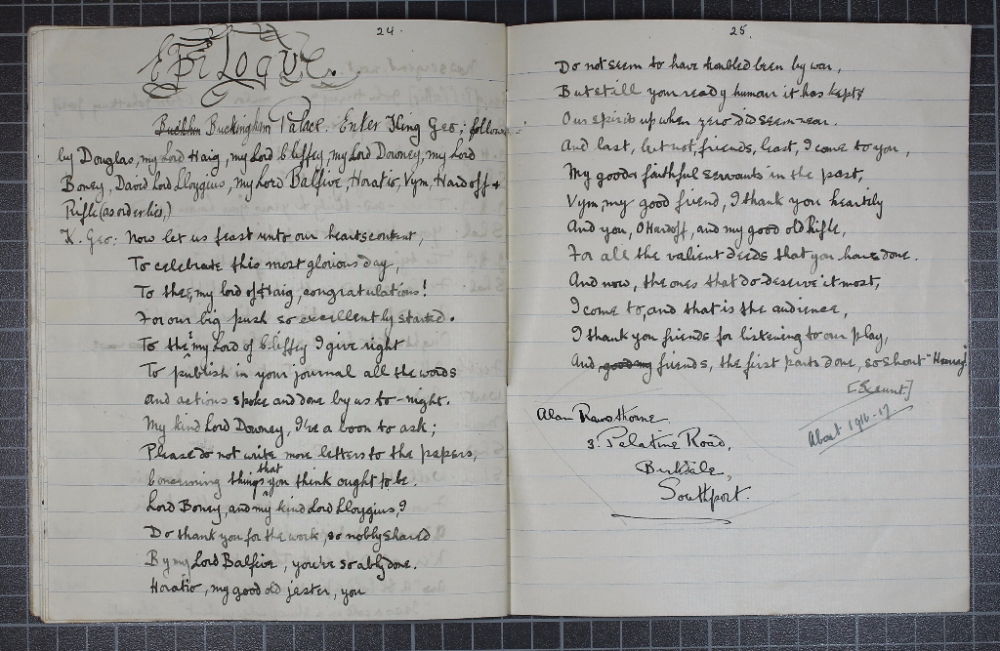 24.
Epilogue.
Buckingham Palace. Enter King Geo; follow
by Douglas, my Lord Haig, my Lord Cliffey, my Lord Downey, my Lord
Boney, David Lord Lloygius, my Lord Balfive, Horatio, Vym, Hardoff &
Rifle (as orderlies,)
K. Geo: Now let us feast unto our hearts content,
To celebrate this most glorious day,
To thee, my lord of Haig, congratulations!
For our big push so excellently started.
To thee my Lord of Cliffey I give right
To publish in your journal all the words
and actions spoke and done by us to-night.
My kind Lord Downey, I've a boon to ask;
Please do not write more letters to the papers,
Concerning things that you think ought to be.
Lord Boney, and my kind Lord Lloygius, I
Do thank you for the work, so nobly shared
By my Lord Balfive, you've so ably done.
Horatio, my good old jester, you
25.
Do not seem to have troubled been by war,
But still your ready humour it has kept
Our spirits up when zero did seem near.
And last, but not, friends, least, I come to you,
My good faithful servants in the past,
Vym, my good friend, I thank you heartily
And you, O Hardoff, and my good old Rifle,
For all the valient deeds that you have done.
And now, the ones that do deserve it most,
I come to, and that is the audience,
I thank you friends for listening to our play,
And good my friends, the first parts done, so shout "Hurray"
[Exeunt.]
Alan Rawsthorne.
3. Palatine Road,
Birkdale,
Southport.
About 1916-17